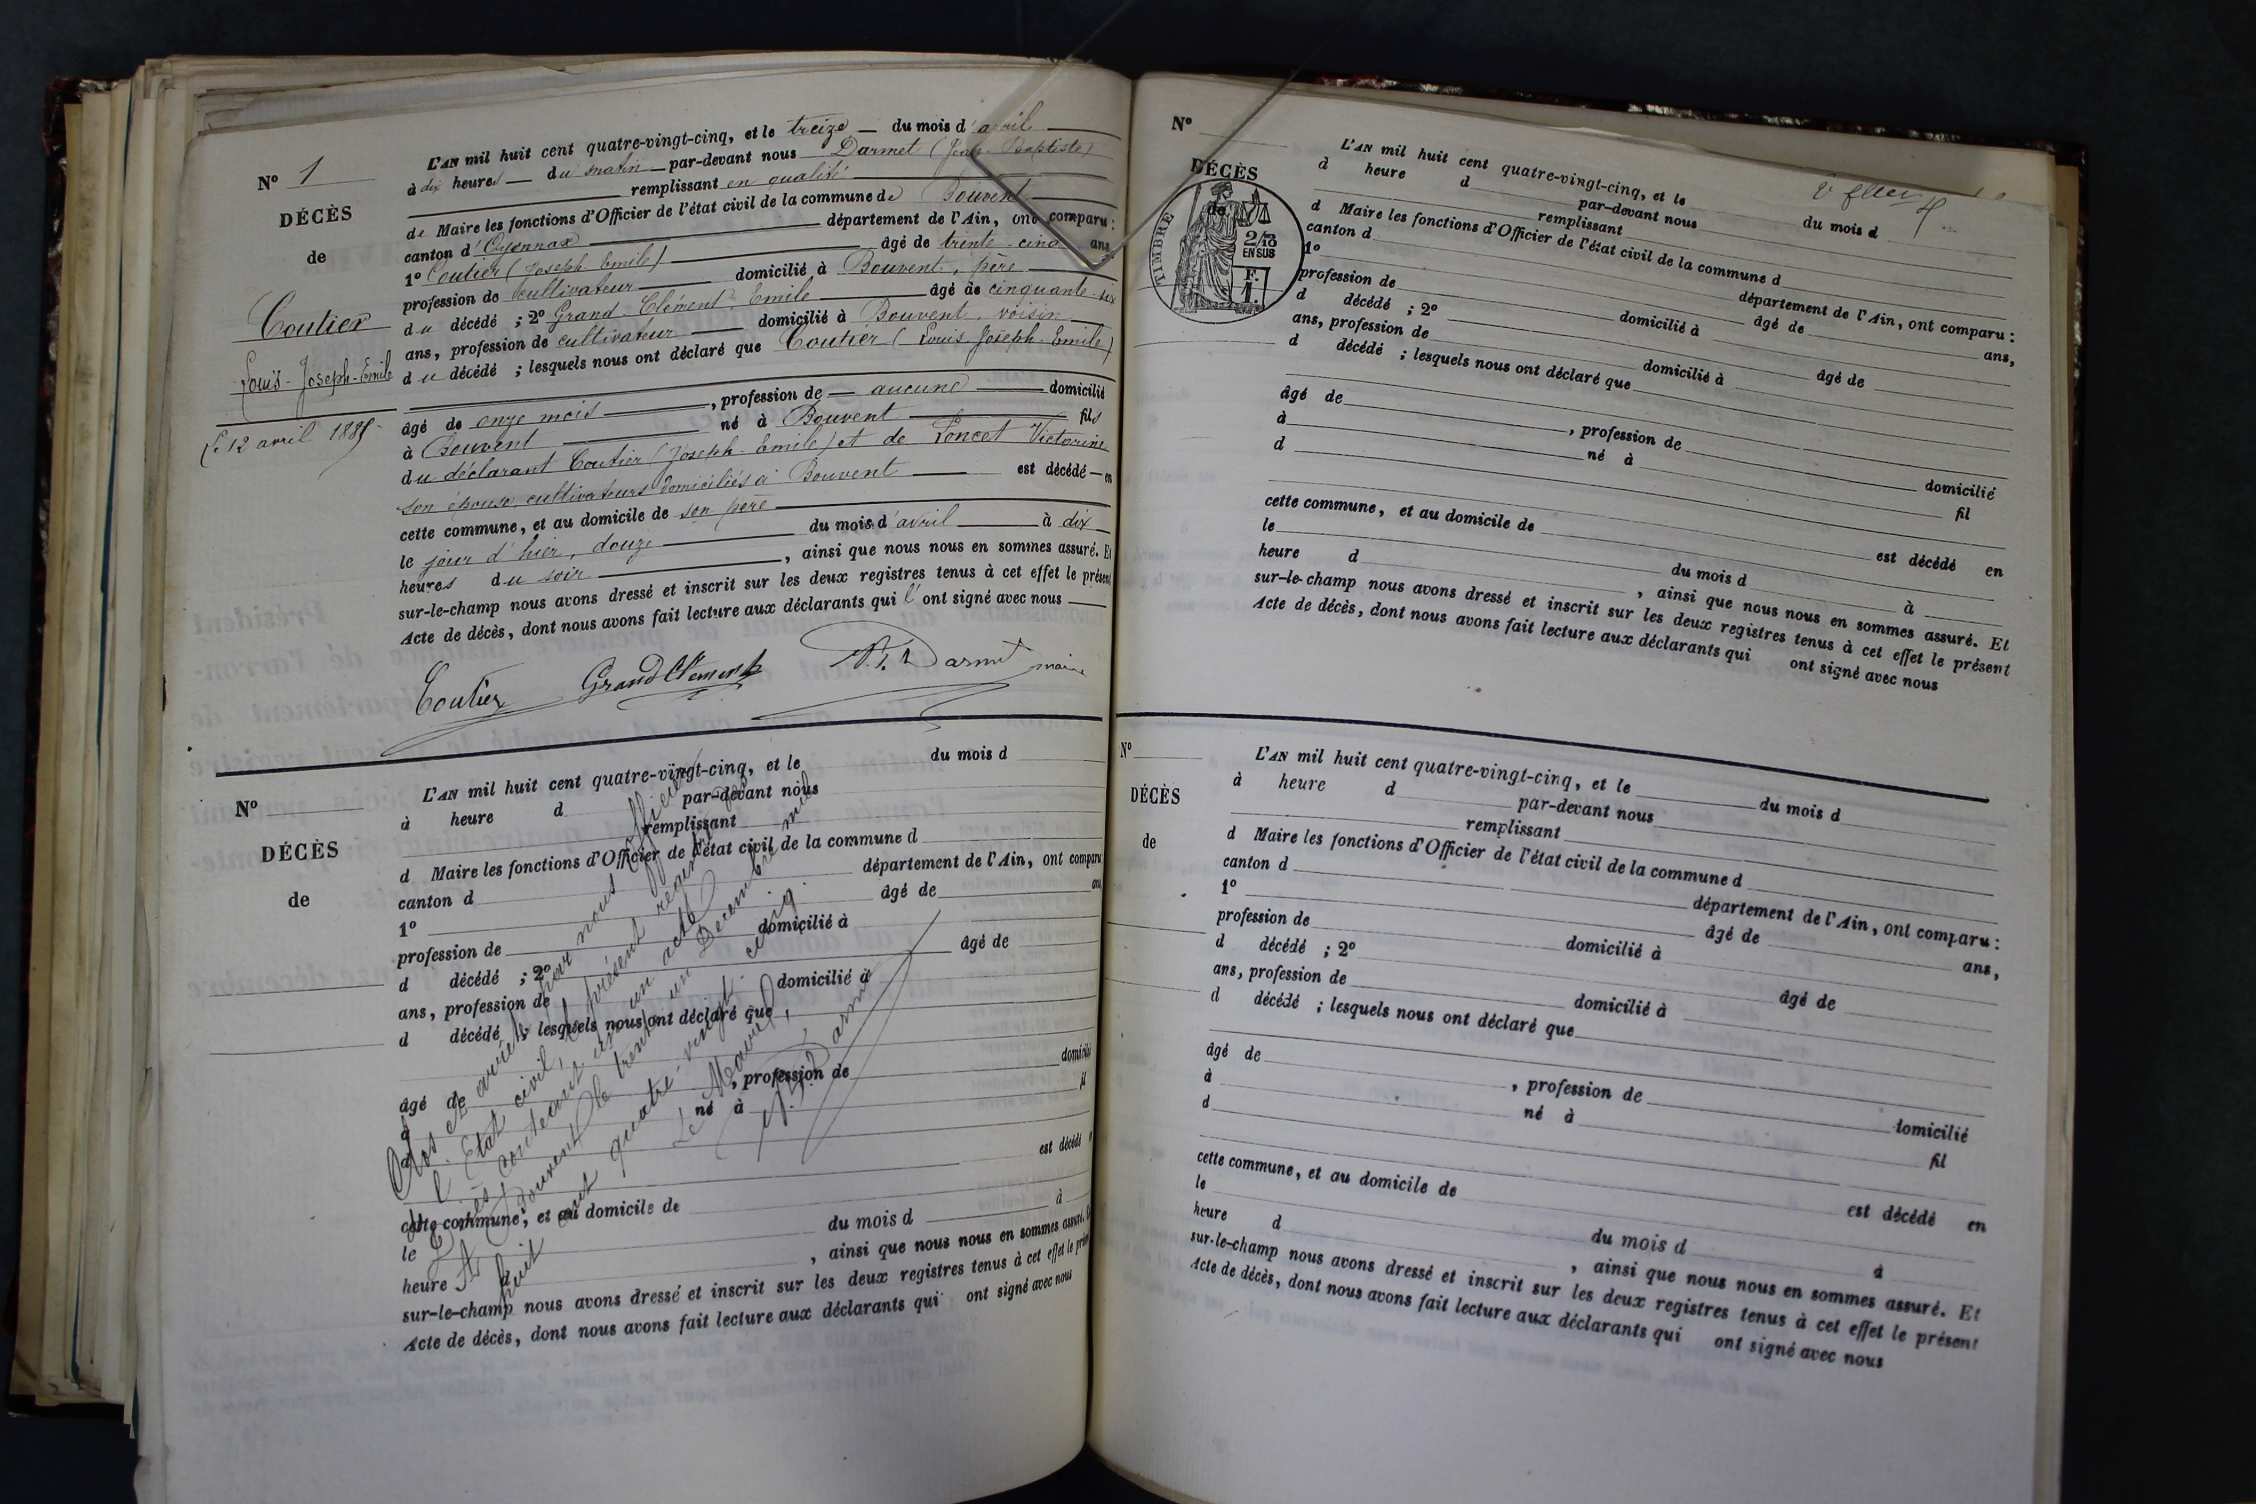 N° 1
DÉCÈS
de
Coutier
Louis-Joseph-Emile
le 12 avril 1885
L'AN mil huit cent quatre-vingt-cinq, et le treize du mois d'avril
à dix heures du matin par-devant nous Darmet (Jean-Baptiste)
remplissant en qualité
de Maire les fonctions d'Officier de l'état civil de la commune de Bouvent
canton d'Oyonnax département de l'Ain, ont comparu :
1° Coutier (Joseph Emile) âgé de trente-cinq ans
profession de cultivateur domicilié à Bouvent, père
du décédé ; 2° Grand-Clément Emile âgé de cinquante-six
ans, profession de cultivateur domicilié à Bouvent, voisin
du décédé ; lesquels nous ont déclaré que Coutier (Louis-Joseph-Emile)
âgé de onze mois, profession de aucune domicilié
à Bouvent né à Bouvent fils
du déclarant Coutier (Joseph-Emile) et de Poncet Victorine
son épouse cultivateurs domiciliés à Bouvent est décédé en
cette commune, et au domicile de son père
le jour d'hier, douze du mois d'avril à dix
heures du soir, ainsi que nous nous en sommes assuré. Et
sur-le-champ nous avons dressé et inscrit sur les deux registres tenus à cet effet le présent
Acte de décès, dont nous avons fait lecture aux déclarants qui l'ont signé avec nous
Coutier GrandClément J.B. Darmet maire
N°
DÉCÈS
de
L'AN mil huit cent quatre-vingt-cinq, et le du mois d
à heure d par-devant nous
remplissant
d Maire les fonctions d'Officier de l'état civil de la commune d
canton d département de l'Ain, ont comparu
1° âgé de an
profession de domicilié à
d décédé ; 2° âgé de
ans, profession de domicilié à
d décédé ; lesquels nous ont déclaré que
âgé de , profession de domicilié
à né à fil
d
est décédé
cette commune, et au domicile de
le du mois d à
heure d , ainsi que nous nous en sommes assuré. Et
sur-le-champ nous avons dressé et inscrit sur les deux registres tenus à cet effet le présent
Acte de décès, dont nous avons fait lecture aux déclarants qui ont signé avec nous
Clos et arrêté par nous officier de
l'Etat civil, le présent registre des
Décès contenant un acte
A Bouvent le trente un Décembre mil
huit cent quatre-vingt-cinq.
Le Maire,
J.B. Darmet
N°
DÉCÈS
de
TIMBRE
2/10
EN SUS
F.
1.
L'AN mil huit cent quatre-vingt-cinq, et le du mois d
à heure d par-devant nous
remplissant
d Maire les fonctions d'Officier de l'état civil de la commune d
canton d département de l'Ain, ont comparu :
1° âgé de ans,
profession de domicilié à
d décédé ; 2° âgé de
ans, profession de domicilié à
d décédé ; lesquels nous ont déclaré que
âgé de , profession de domicilié
à né à fil
d
est décédé en
cette commune, et au domicile de
le du mois d à
heure d , ainsi que nous nous en sommes assuré. Et
sur-le-champ nous avons dressé et inscrit sur les deux registres tenus à cet effet le présent
Acte de décès, dont nous avons fait lecture aux déclarants qui ont signé avec nous
N°
DÉCÈS
de
L'AN mil huit cent quatre-vingt-cinq, et le du mois d
à heure d par-devant nous
remplissant
d Maire les fonctions d'Officier de l'état civil de la commune d
canton d département de l'Ain, ont comparu :
1° âgé de ans,
profession de domicilié à
d décédé ; 2° âgé de
ans, profession de domicilié à
d décédé ; lesquels nous ont déclaré que
âgé de , profession de domicilié
à né à fil
d
est décédé en
cette commune, et au domicile de
le du mois d à
heure d , ainsi que nous nous en sommes assuré. Et
sur-le-champ nous avons dressé et inscrit sur les deux registres tenus à cet effet le présent
Acte de décès, dont nous avons fait lecture aux déclarants qui ont signé avec nous